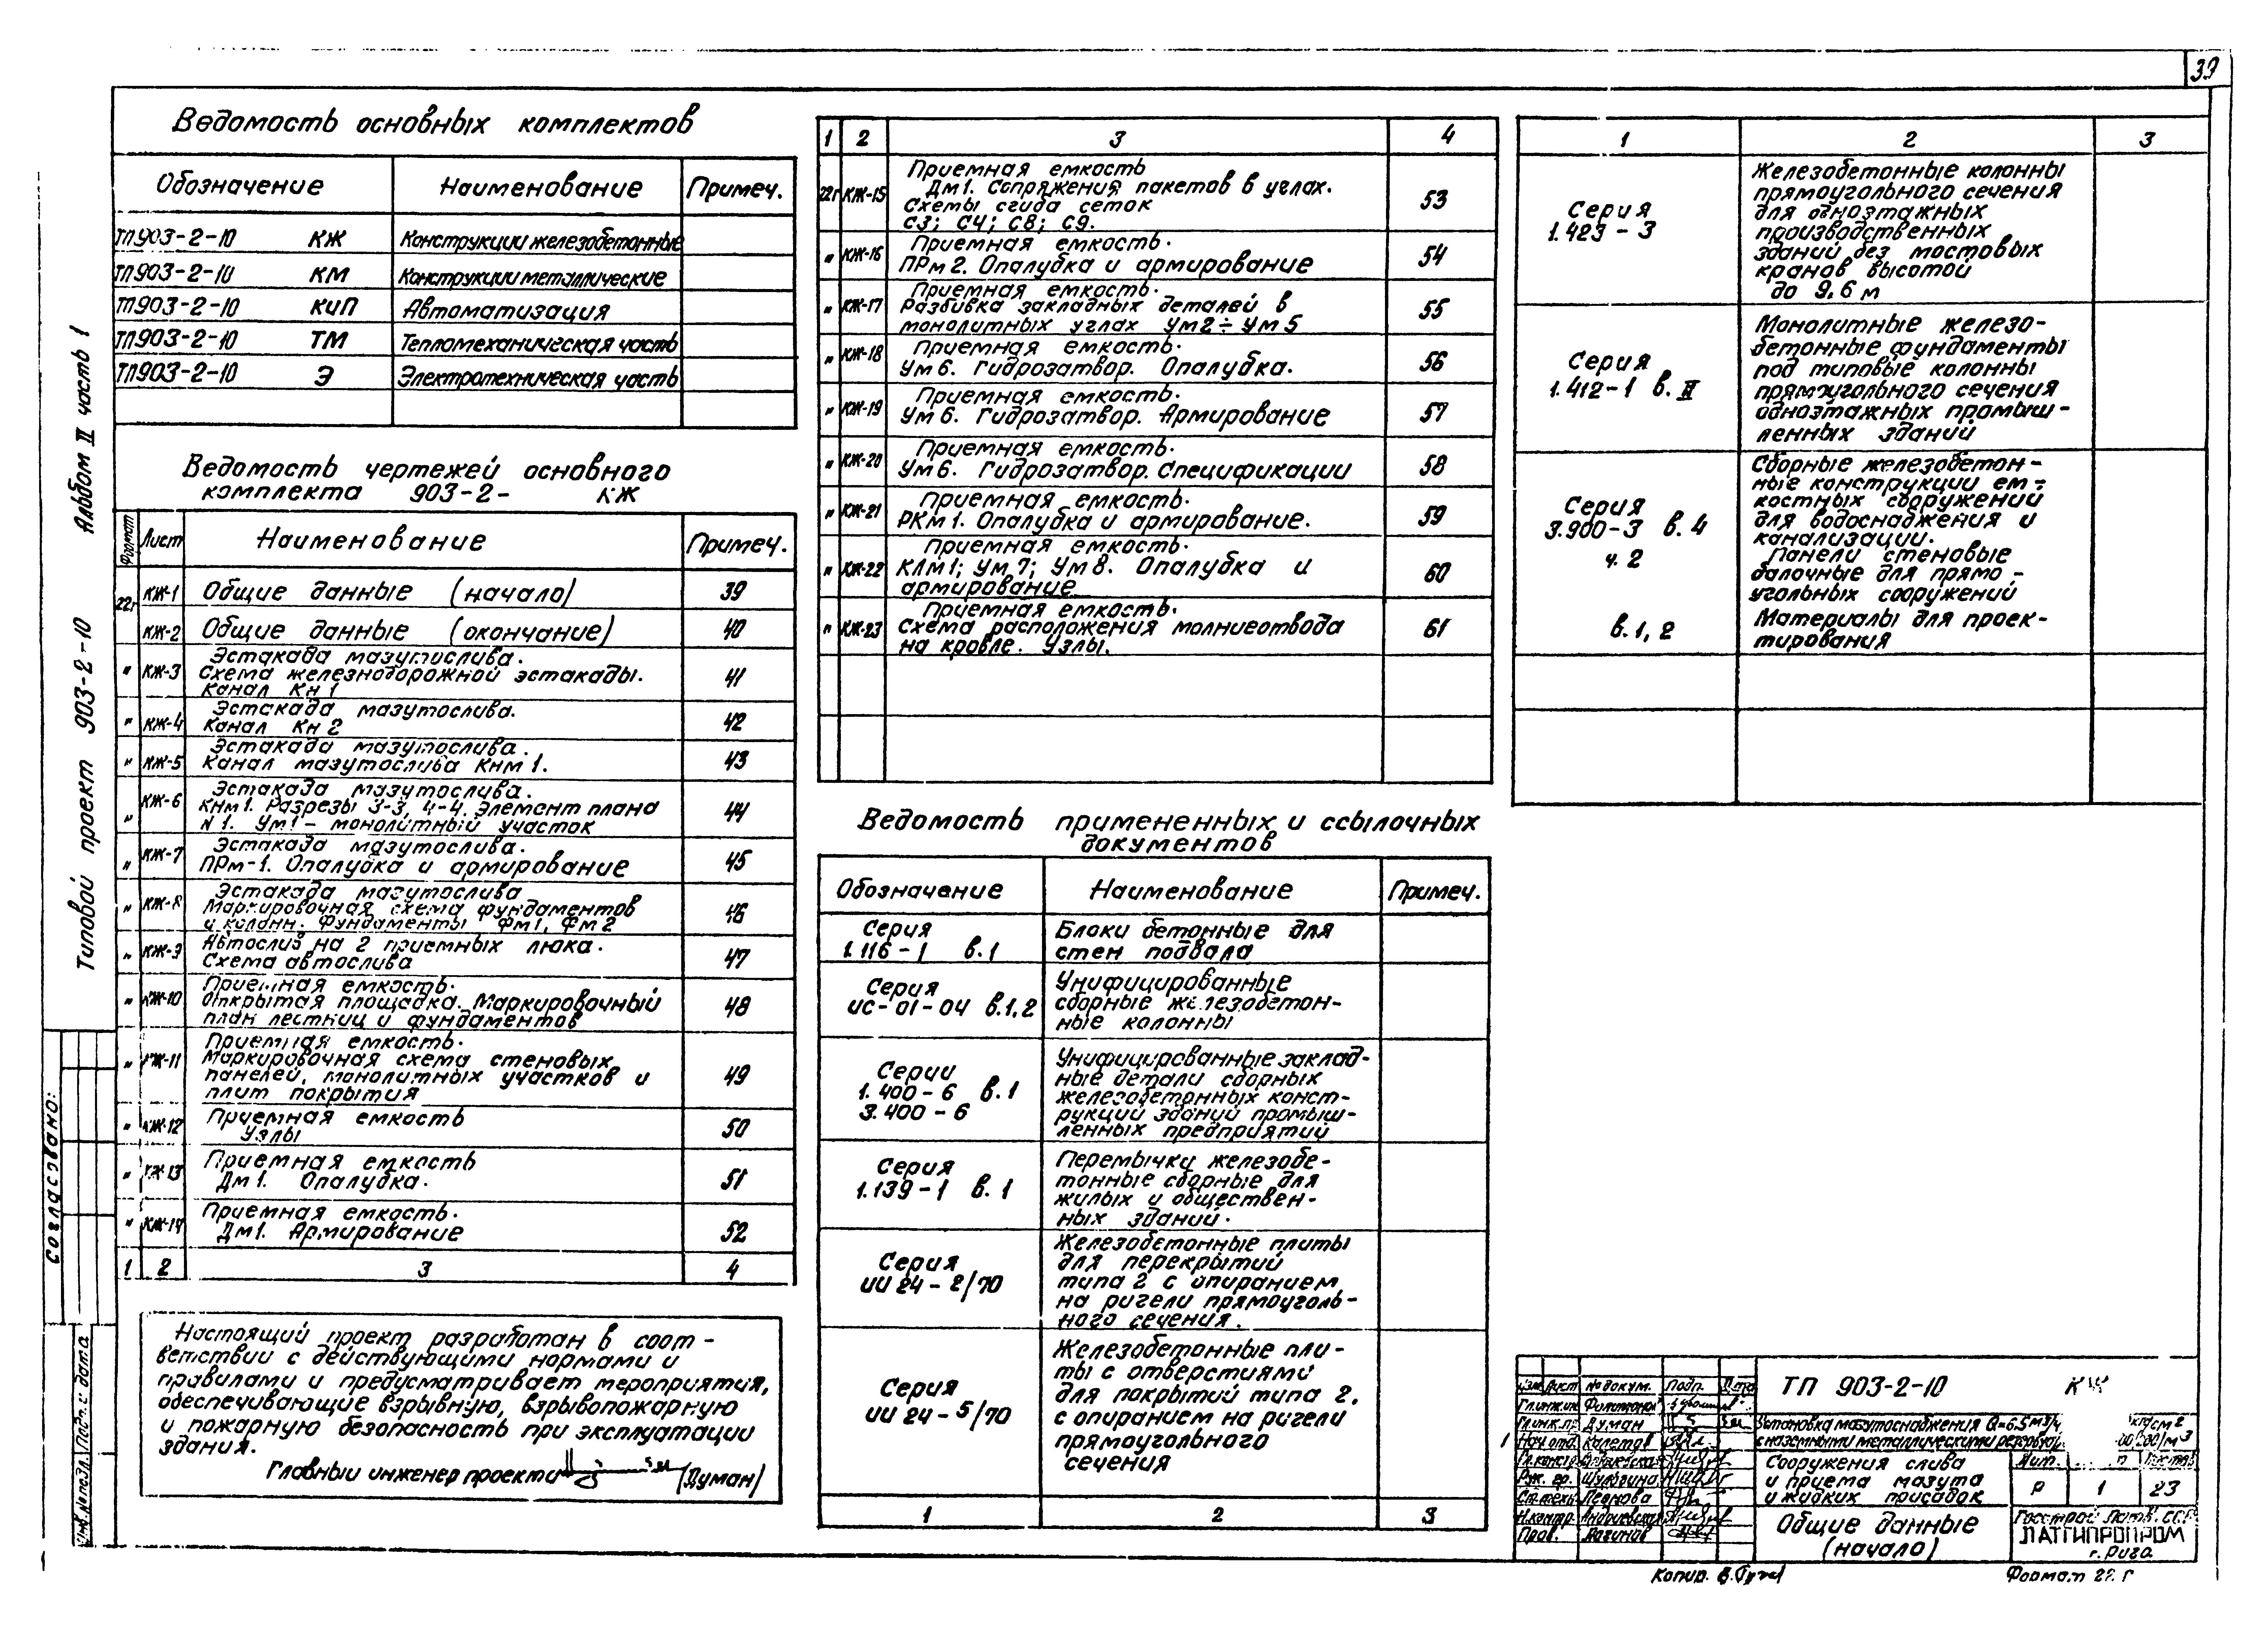 39
Альбом II часть 1
Типовой проект 903-2-10
Согласовано:
Инв.№ подл. Подп. и дата
Ведомость основных комплектов
Обозначение Наименование Примеч.
ТП903-2-10 КЖ Конструкции железобетонные
ТП903-2-10 КМ Конструкции металлические
ТП903-2-10 КиП Автоматизация
ТП903-2-10 ТМ Тепломеханическая часть
ТП903-2-10 Э Электротехническая часть
Ведомость чертежей основного
комплекта 903-2- КЖ
Формат Лист Наименование Примеч.
22г КЖ-1 Общие данные (начало) 39
КЖ-2 Общие данные (окончание) 40
Эстакада мазутослива.
" КЖ-3 Схема железнодорожной эстакады. 41
Канал Кн1
Эстакада мазутослива.
" КЖ-4 Канал Кн2 42
Эстакада мазутослива.
" КЖ-5 Канал мазутослива Кнм1. 43
Эстакада мазутослива.
" КЖ-6 Кнм1. Разрезы 3-3, 4-4. Элемент плана 44
N1. Ум1 – монолитный участок
Эстакада мазутослива.
" КЖ-7 ПРм-1. Опалубка и армирование 45
Эстакада мазутослива
" КЖ-8 Маркировочная схема фундаментов 46
и колонн. Фундаменты Фм1, Фм2
" КЖ-9 Автослив на 2 приемных люка. 47
Схема автослива
Приемная емкость.
" КЖ-10 Открытая площадка. Маркировочный 48
план лестниц и фундаментов
Приемная емкость.
" КЖ-11 Маркировочная схема стеновых 49
панелей, монолитных участков и
плит покрытия
" КЖ-12 Приемная емкость 50
Узлы
" КЖ-13 Приемная емкость 51
Дм1. Опалубка.
" КЖ-14 Приемная емкость. 52
Дм1. Армирование
1 2 3 4
Настоящий проект разработан в соот -
ветствии с действующими нормами и
правилами и предусматривает мероприятия,
обеспечивающие взрывную, взрывопожарную
и пожарную безопасность при эксплуатации
здания.
Главный инженер проекта (Думан)
1 2 3 4
Приемная емкость
22г КЖ-15 Дм1. Сопряжения пакетов в углах. 53
Схемы сгиба сеток
С3; С4; С8; С9.
Приемная емкость.
" КЖ-16 ПРм2. Опалубка и армирование 54
Приемная емкость.
" КЖ-17 Разбивка закладных деталей в 55
монолитных углах Ум2÷Ум5
Приемная емкость.
" КЖ-18 Ум6. Гидрозатвор. Опалубка. 56
Приемная емкость.
" КЖ-19 Ум6. Гидрозатвор. Армирование 57
Приемная емкость.
" КЖ-20 Ум6. Гидрозатвор. Спецификации 58
Приемная емкость.
" КЖ-21 РКм1. Опалубка и армирование. 59
Приемная емкость.
" КЖ-22 КЛм1; Ум7; Ум8. Опалубка и 60
армирование
Приемная емкость.
" КЖ-23 Схема расположения молниеотвода 61
на кровле. Узлы.
Ведомость примененных и ссылочных
документов
Обозначение Наименование Примеч.
Серия Блоки бетонные для
1.116-1 в.1 стен подвала
Серия Унифицированные
ИС-01-04 в.1,2 сборные железобетон-
ные колонны
Унифицированные заклад-
Серии ные детали сборных
1.400-6 в.1 железобетонных конст-
3.400-6 рукций зданий промыш-
ленных предприятий
Серия Перемычки железобе-
1.139-1 в.1 тонные сборные для
жилых и обществен-
ных зданий.
Железобетонные плиты
Серия для перекрытий
ИИ 24-2/70 типа 2 с опиранием
на ригели прямоуголь-
ного сечения.
Железобетонные пли-
ты с отверстиями
Серия для покрытий типа 2,
ИИ 24-5/70 с опиранием на ригели
прямоугольного
сечения
1 2 3
1 2 3
Железобетонные колонны
прямоугольного сечения
Серия для одноэтажных
1.423-3 производственных
зданий без мостовых
кранов высотой
до 9,6 м
Монолитные железо-
бетонные фундаменты
Серия под типовые колонны
1.412-1 в.II прямоугольного сечения
одноэтажных промыш-
ленных зданий
Сборные железобетон-
ные конструкции ем-
Серия костных сооружений
3.900-3 в.4 для водоснабжения и
канализации.
ч.2 Панели стеновые
балочные для прямо-
угольных сооружений
в.1,2 Материалы для проек-
тирования
Изм Лист № докум. Подп. Дата
Гл.инж.ин
Гл.инж.пр Думан
Нач.отд. Калетов
Гл.констр
Рук. гр. Шульгина
Ст.техн. Леонова
Н.контр. Андриевская
Пров. Логинов
ТП 903-2-10 КЖ
Установка мазутоснабжения Q=6.5м3/ч кг/см2
с наземными металлическими резервуар 00/200/м3
Сооружения слива
и приема мазута
и жидких присадок
Лит. Листов
Р 1 23
Общие данные
(начало)
Госстрой Латв. ССР
ЛАТГИПРОПРОМ
г. Рига
Копир.
Формат 22 Г